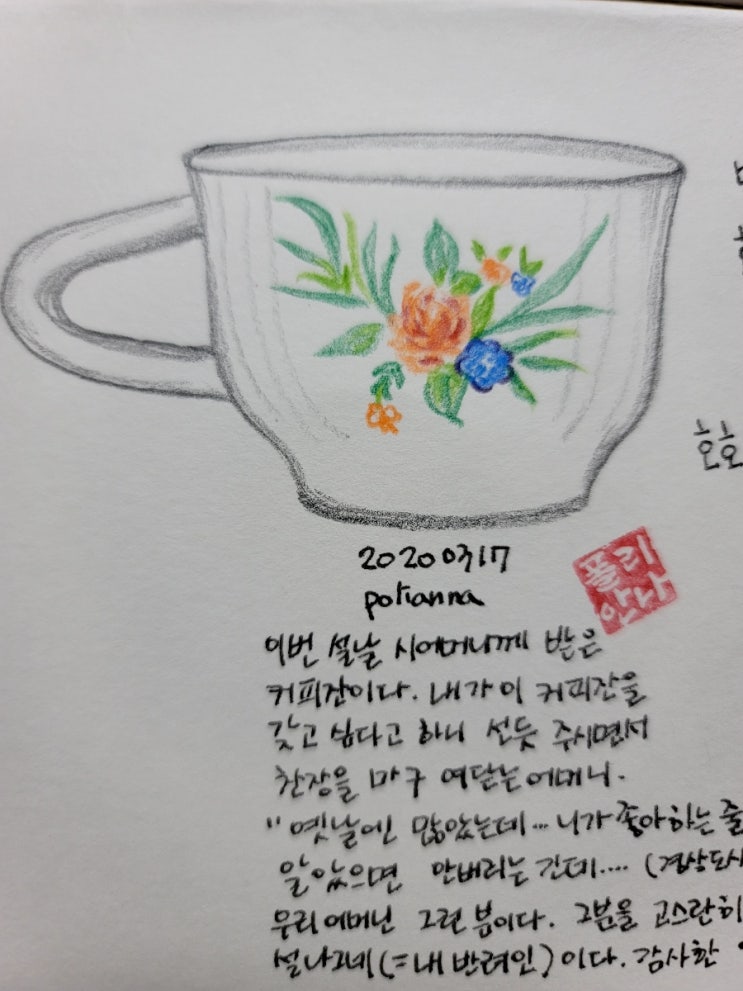 호호
20200317
polianna
폴리
안나
이번 설날 시어머니께 받은
커피잔이다. 내가 이 커피잔을
갖고 싶다고 하니 선듯 주시면서
찬장을 마구 여닫는 어머니.
"옛날엔 많았는데... 니가 좋아하는 줄
알았으면 안버리는 긴데.... (경상도
우리 어머닌 그런 분이다. 그분을 고스란히
(=내 반려인)이다. 감사한